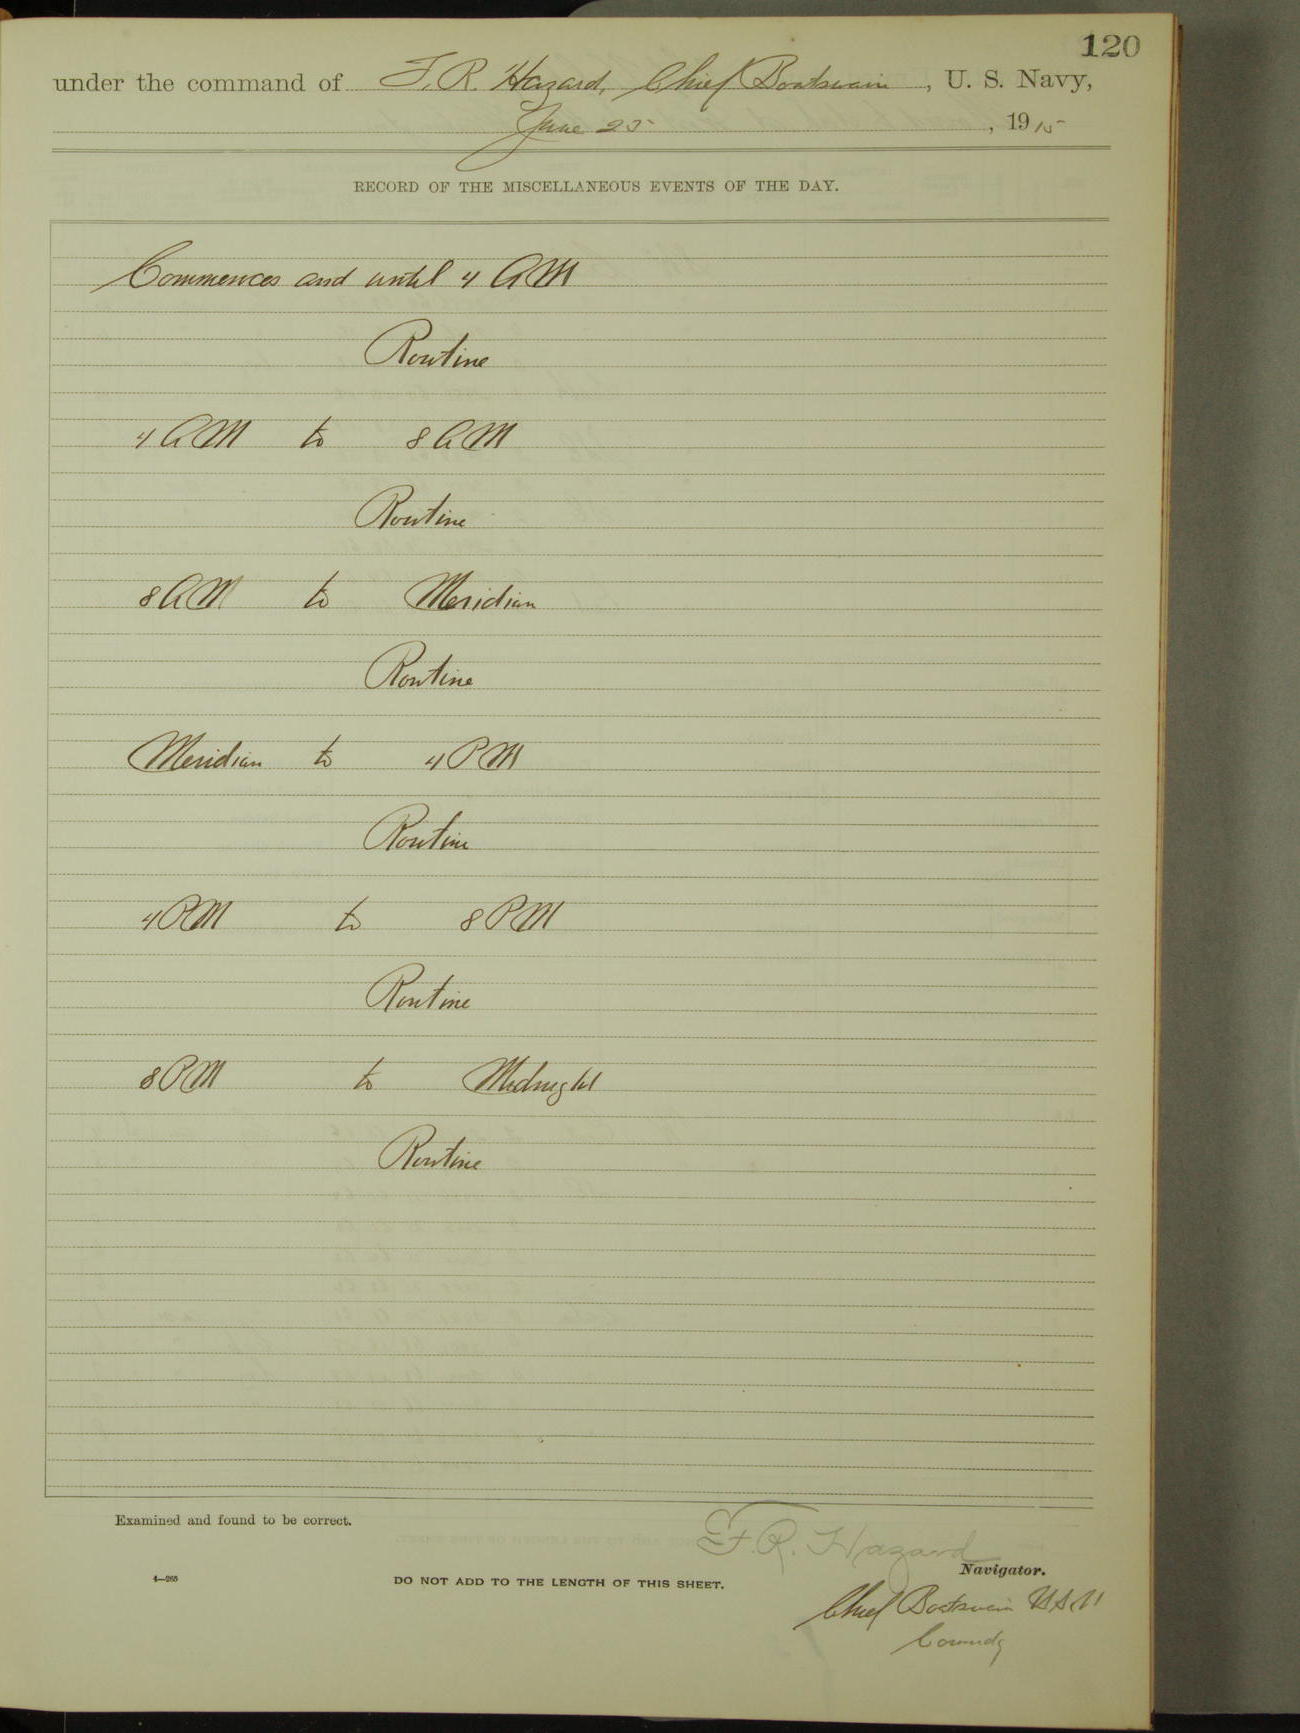 120
under the command of F. R. Hazard, Chief Boatswain, U. S. Navy,
June 25, 1915
RECORD OF THE MISCELLANEOUS EVENTS OF THE DAY.
Commences and until 4 AM
Routine
4 AM to 8 AM
Routine
8 AM to Meridian
Routine
Meridian to 4 PM
Routine
4 PM to 8 PM
Routine
8 PM to Midnight
Routine
Examined and found to be correct.
F. R. Hazard
Navigator.
4—265 DO NOT ADD TO THE LENGTH OF THIS SHEET.
Chief Boatswain U S N
Comndg